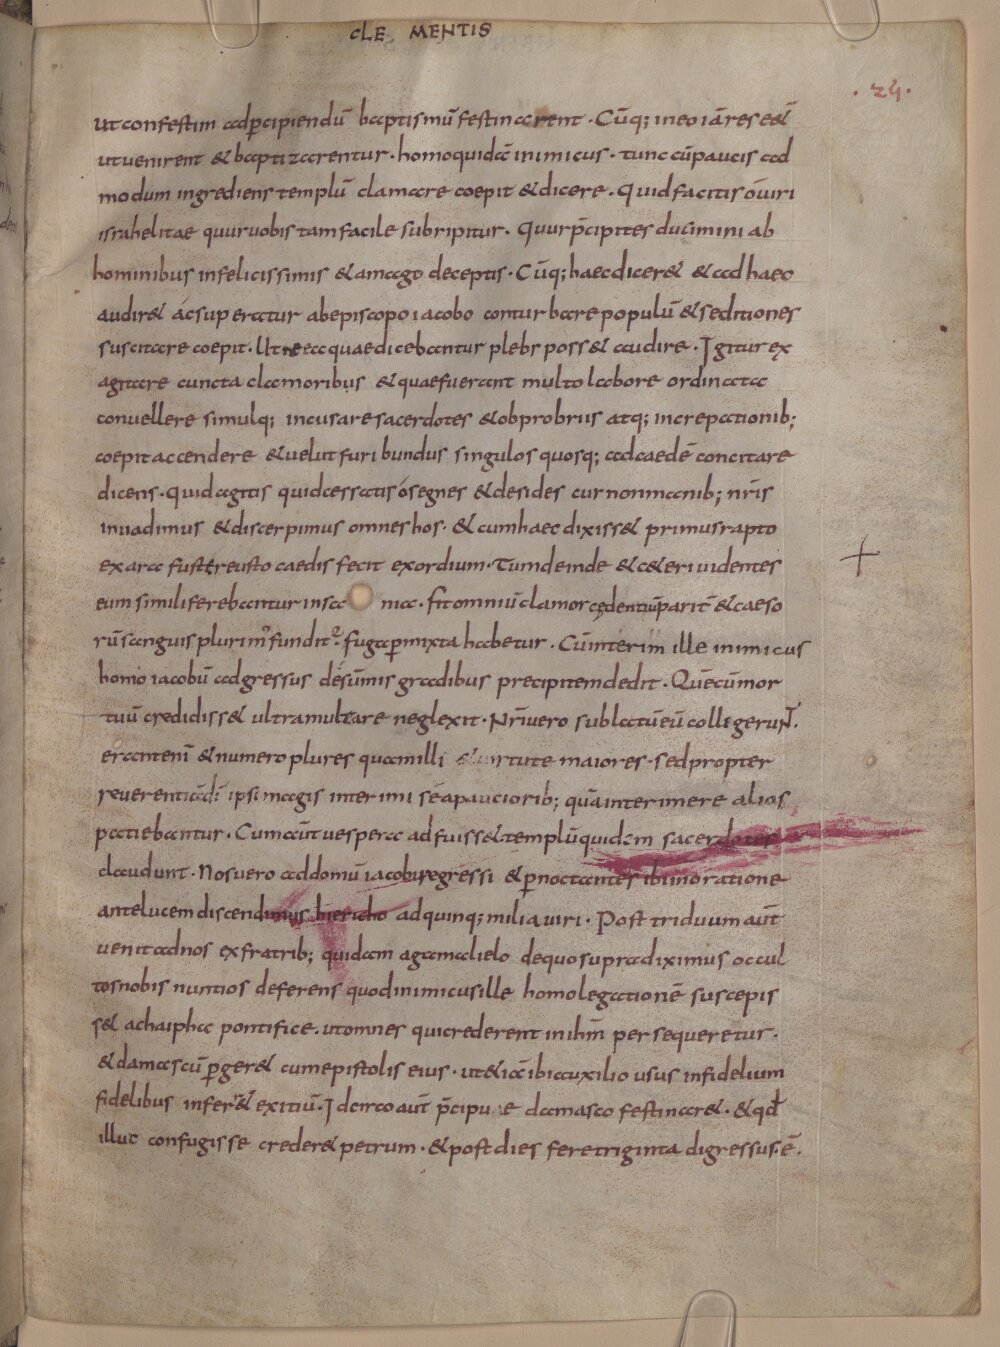 CLEMENTIS
· 24 ·
ut confestim ad p̄cipiendū baptismū festinarent · Cūq; in eo iā res eēt
ut uenirent & baptizarentur · homo quidā inimicus · tunc cū paucis ad
modum ingrediens templū clamare coepit & dicere · Quid facitis ō uiri
israhelitae quur uobis tam facile subripitur · Quur p̄cipites ducimini ab
hominibus infelicissimis & a mago deceptis · Cūq; haec dicer& & ad haec
audir& ác superatur ab episcopo iacobo conturbare populū & seditiones
suscitare coepit · Ut ea quae dicebantur plebs poss& audire · Igitur ex
agitare cuncta clamoribus & quae fuerant multo labore ordinata
conuellere simulq; incusare sacerdotes & obprobriis atq; increpationib;
coepit accendere & uelut furibundus singulos quosq; ad caedē concitare
dicens · quid agitis quid cessatis ó segnes & desides cur non manib; nr̄is
inuadimus & discerpimus omnes hos · & cum haec dixiss& primus rapto
ex ara fuste reusto caedis fecit exordium · Tum deinde & c&eri uidentes
eum simili ferebantur insa nia · fit omniū clamor cędentiū parit̄ & caeso
rū sanguis plurim' fundit᷑ · fuga p̄mixta habetur · Cū interim ille inimicus
homo iacobū adgressus de sūmis gradibus precipitem dedit · Quē cū mor
tuū credidiss& ultra multare neglexit · Nr̄i uero sublatū eū collegerun̄t ·
erant enī & numero plures quā illi & uirtute maiores · sed propter
reuerentiā dī ipsi magis interimi sé a paucioribus; quā interimere alios
patiebantur · Cum aūt uespera adfuiss& templū quidem sacerdotes
claudunt · Nos uero ad domū iacobi regressi & p̄noctantes ibi in oratione
ante lucem discendimus hiericho ad quinq; milia uiri · Post triduum aūt
uenit ad nos ex fratrib; quidam a gamalielo de quo supra diximus occul
tos nobis nuntios deferens quod inimicus ille homo legationē suscepis
s& a chaipha pontifice · ut omnes qui crederent in ihm̄ persequeretur ·
& damascū p̄ger& cum epistolis eius · ut & iā ibi auxilio usus infidelium
fidelibus inferr& exitiū · Idcirco aūt p̄cipu e damasco festinar& · & qđ
illuc confugisse creder& petrum · & post dies fere triginta digressus · ē ·